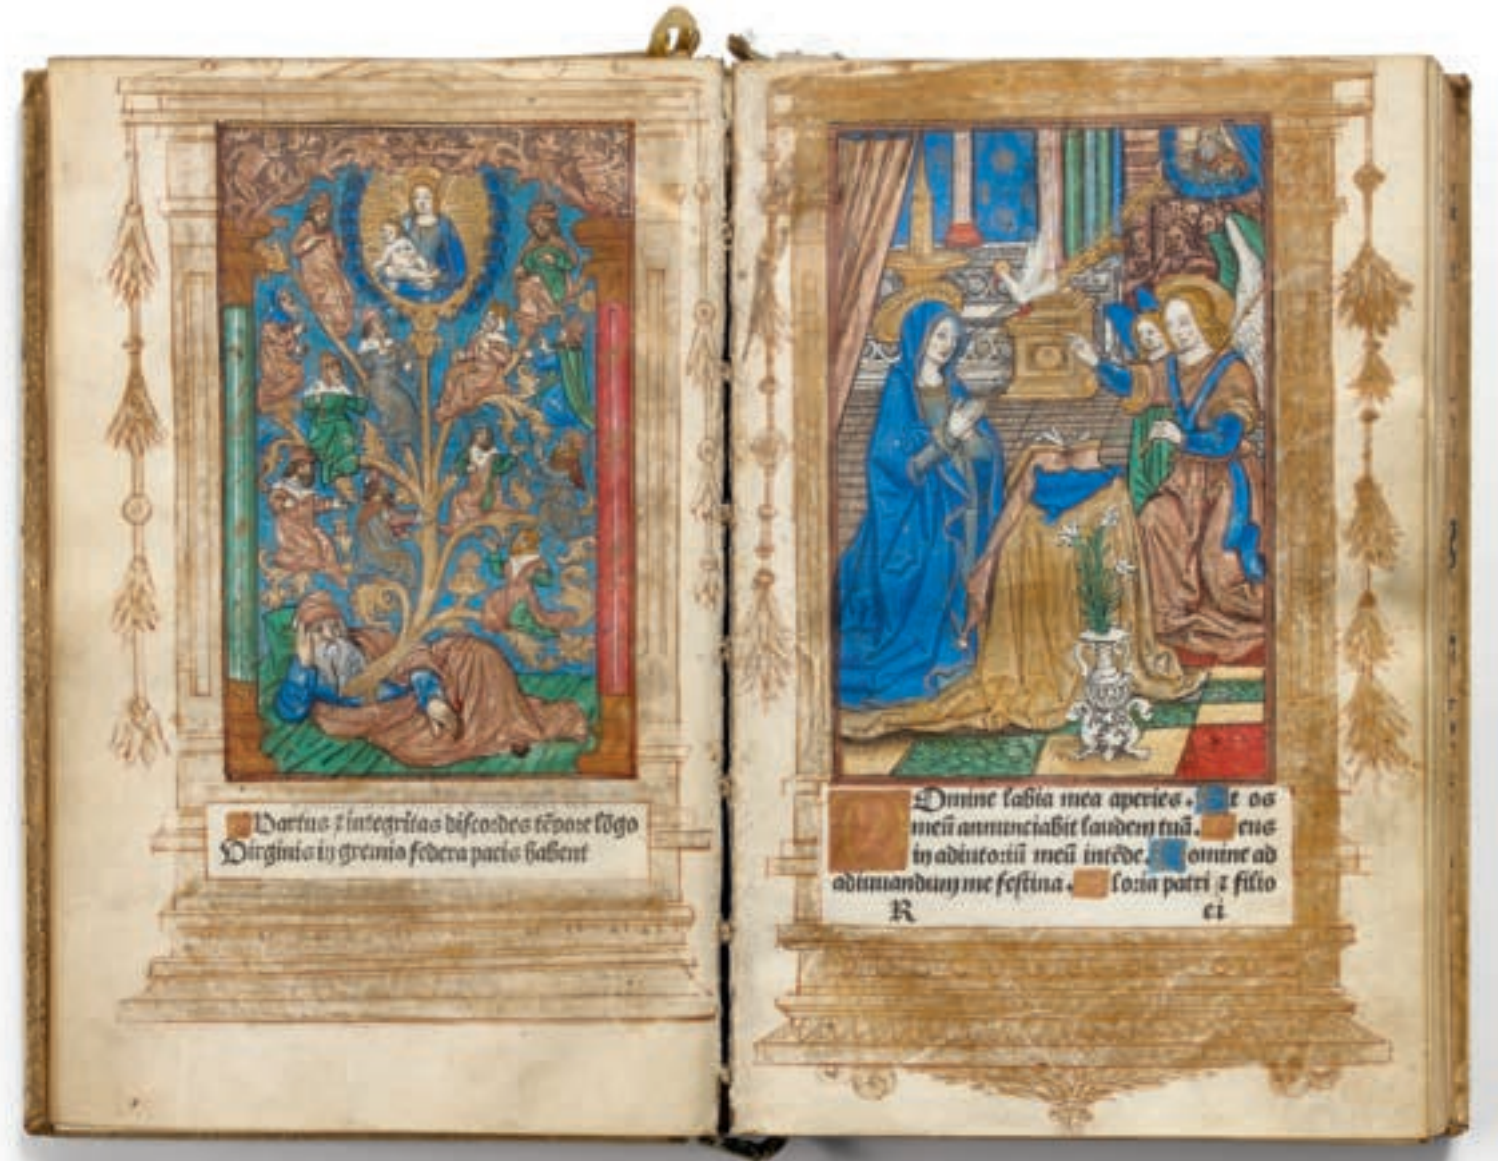 Partus ⁊ integritas discordes tēpore lōgo
Virginis in gremio federa pacis habent
Domine labia mea aperies. Et os
meū annunciabit laudem tuā. Deus
in adiutoriū meū intēde. Domine ad
adiuuandum me festina. Gloria patri ⁊ filio
R ei